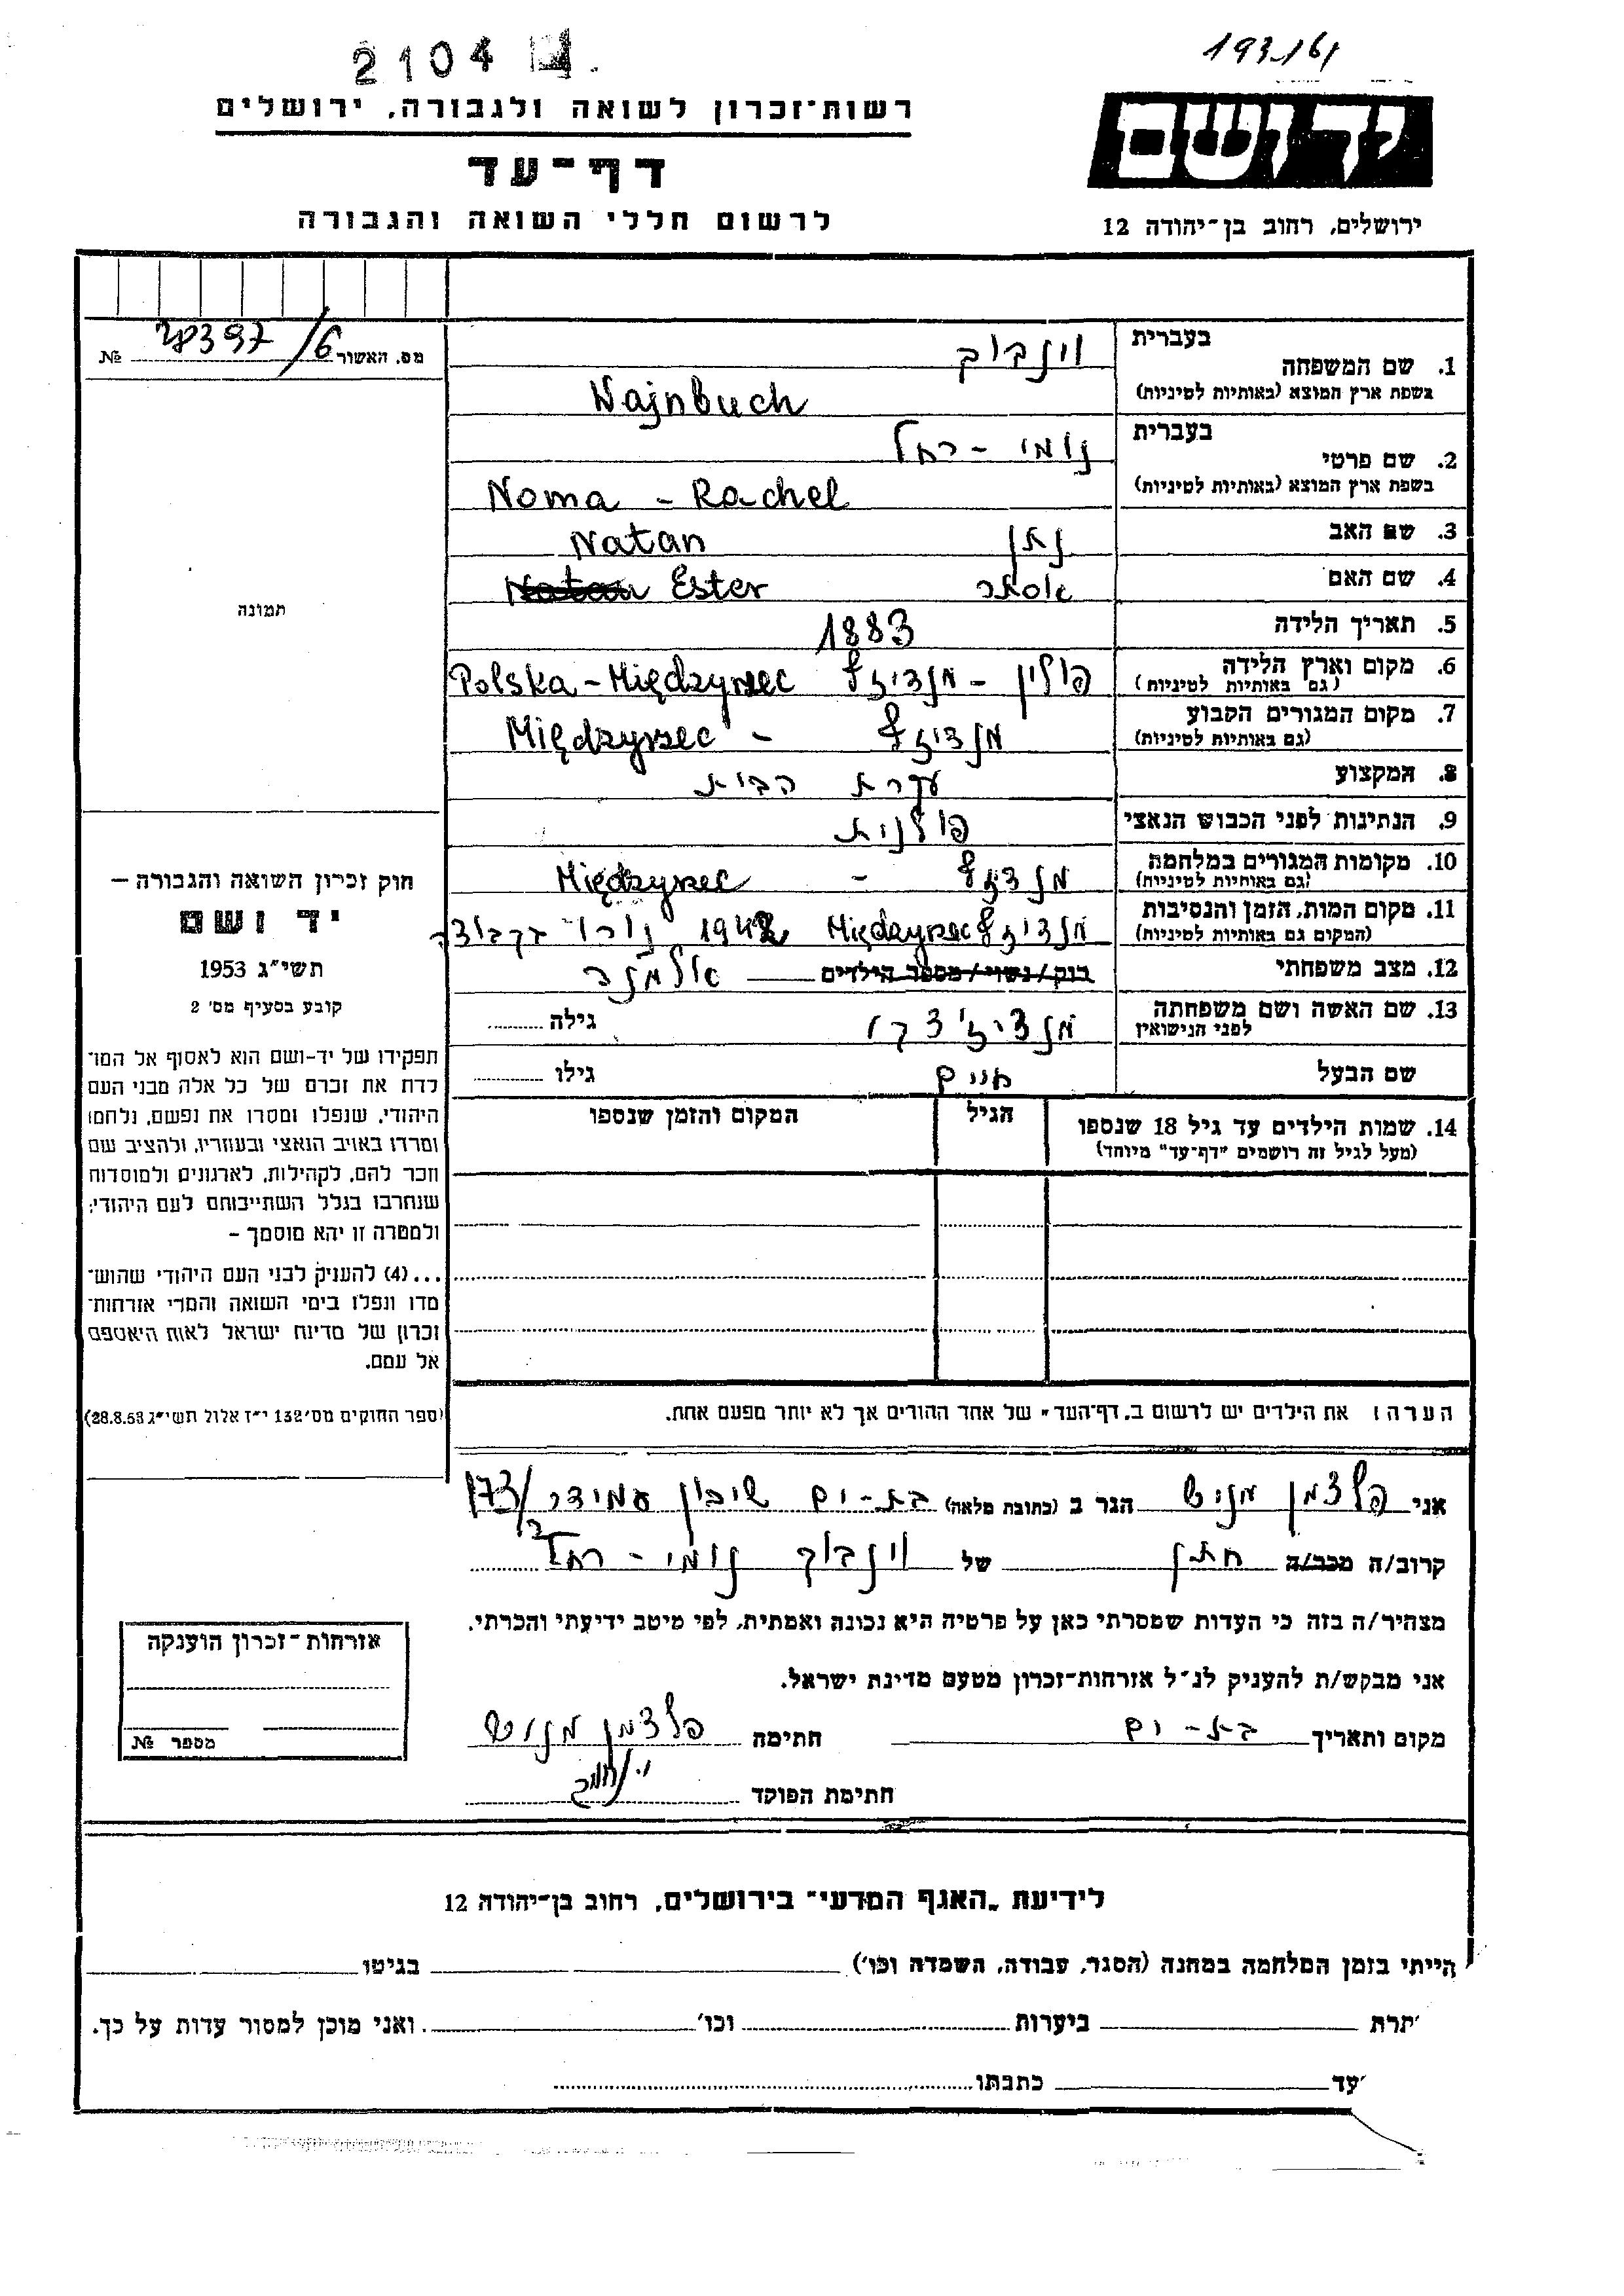 2104
193/161
רשות־זכרון לשואה ולגבורה, ירושלים
יד ושם
דף־עד
לרשום חללי השואה והגבורה
ירושלים, רחוב בן־יהודה 12
מס. האשור 28397/6 №
1. שם המשפחה בעברית וינבוך
בשפת ארץ המוצא (באותיות לטיניות) Wajnbuch
2. שם פרטי בעברית נומי - רחל
בשפת ארץ המוצא (באותיות לטיניות) Noma - Rachel
3. שם האב נתן Natan
4. שם האם אסתר Natan Ester
5. תאריך הלידה 1883
6. מקום וארץ הלידה (גם באותיות לטיניות) פולין - מנדיזץ Polska - Międzyrzec
7. מקום המגורים הקבוע (גם באותיות לטיניות) מנדיזץ - Międzyrzec
8. המקצוע עקרת הבית
9. הנתינות לפני הכבוש הנאצי פולנית
10. מקומות המגורים במלחמה (גם באותיות לטיניות) מנדיזץ - Międzyrzec
11. מקום המות, הזמן והנסיבות (המקום גם באותיות לטיניות) מנדיזץ Międzyrzec 1942
12. מצב משפחתי רוק/נשוי/מספר הילדים אלמנה
13. שם האשה ושם משפחתה לפני הנישואין גילה
שם הבעל חיים גילו
14. שמות הילדים עד גיל 18 שנספו
(מעל לגיל זה רושמים "דף־עד" מיוחד)
הגיל
המקום והזמן שנספו
הערה: את הילדים יש לרשום ב„דף־העד" של אחד ההורים אך לא יותר מפעם אחת.
תמונה
חוק זכרון השואה והגבורה —
יד ושם
תשי"ג 1953
קובע בסעיף מס' 2
תפקידו של יד-ושם הוא לאסוף אל המו־
לדת את זכרם של כל אלה מבני העם
היהודי, שנפלו ומסרו את נפשם, נלחמו
ומרדו באויב הנאצי ובעוזריו, ולהציב שם
וזכר להם, לקהילות, לארגונים ולמוסדות
שנחרבו בגלל השתייכותם לעם היהודי;
ולמטרה זו יהא מוסמך —
...(4) להעניק לבני העם היהודי שהוש־
מדו ונפלו בימי השואה והמרי אזרחות־
זכרון של מדינת ישראל לאות היאספם
אל עמם.
(ספר החוקים מס' 132 י"ז אלול תשי"ג 28.8.53)
אני פלצמן מניש הגר ב (כתובת מלאה) בת-ים שיכון עמידר 73/
קרוב/ה מכר/ה חתן של וינבוך נומי - רחל
מצהיר/ה בזה כי העדות שמסרתי כאן על פרטיה היא נכונה ואמתית, לפי מיטב ידיעתי והכרתי.
אני מבקש/ת להעניק לנ"ל אזרחות־זכרון מטעם מדינת ישראל.
מקום ותאריך בת-ים חתימה פלצמן מניש
חתימת הפוקד
אזרחות־זכרון הוענקה
מספר №
לידיעת „האגף המדעי" בירושלים, רחוב בן־יהודה 12
הייתי בזמן המלחמה במחנה (הסגר, עבודה, השמדה וכו') בגיטו
יתרת ביערות וכו' ואני מוכן למסור עדות על כך.
עד כתבתו